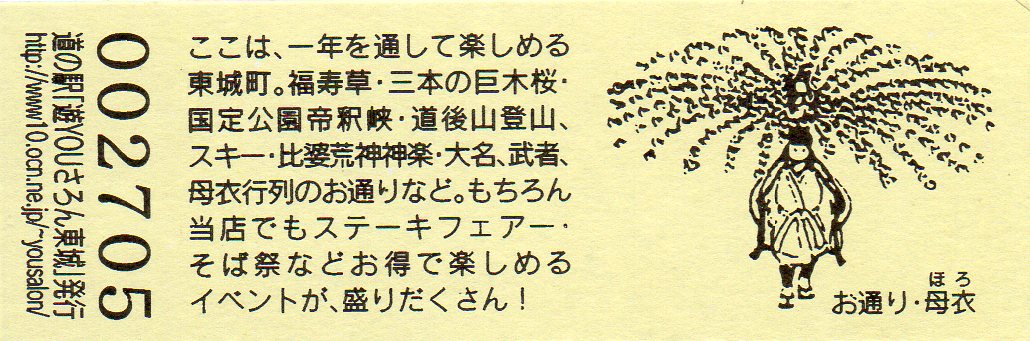 ここは、一年を通して楽しめる
東城町。福寿草・三本の巨木桜・
国定公園帝釈峡・道後山登山、
スキー・比婆荒神神楽・大名、武者、
母衣行列のお通りなど。もちろん
当店でもステーキフェアー・
そば祭などお得で楽しめる
イベントが、盛りだくさん！
ほろ
お通り・母衣
002705
道の駅「遊YOUさろん東城」発行
http://www10.ocn.ne.jp/~yousalon/